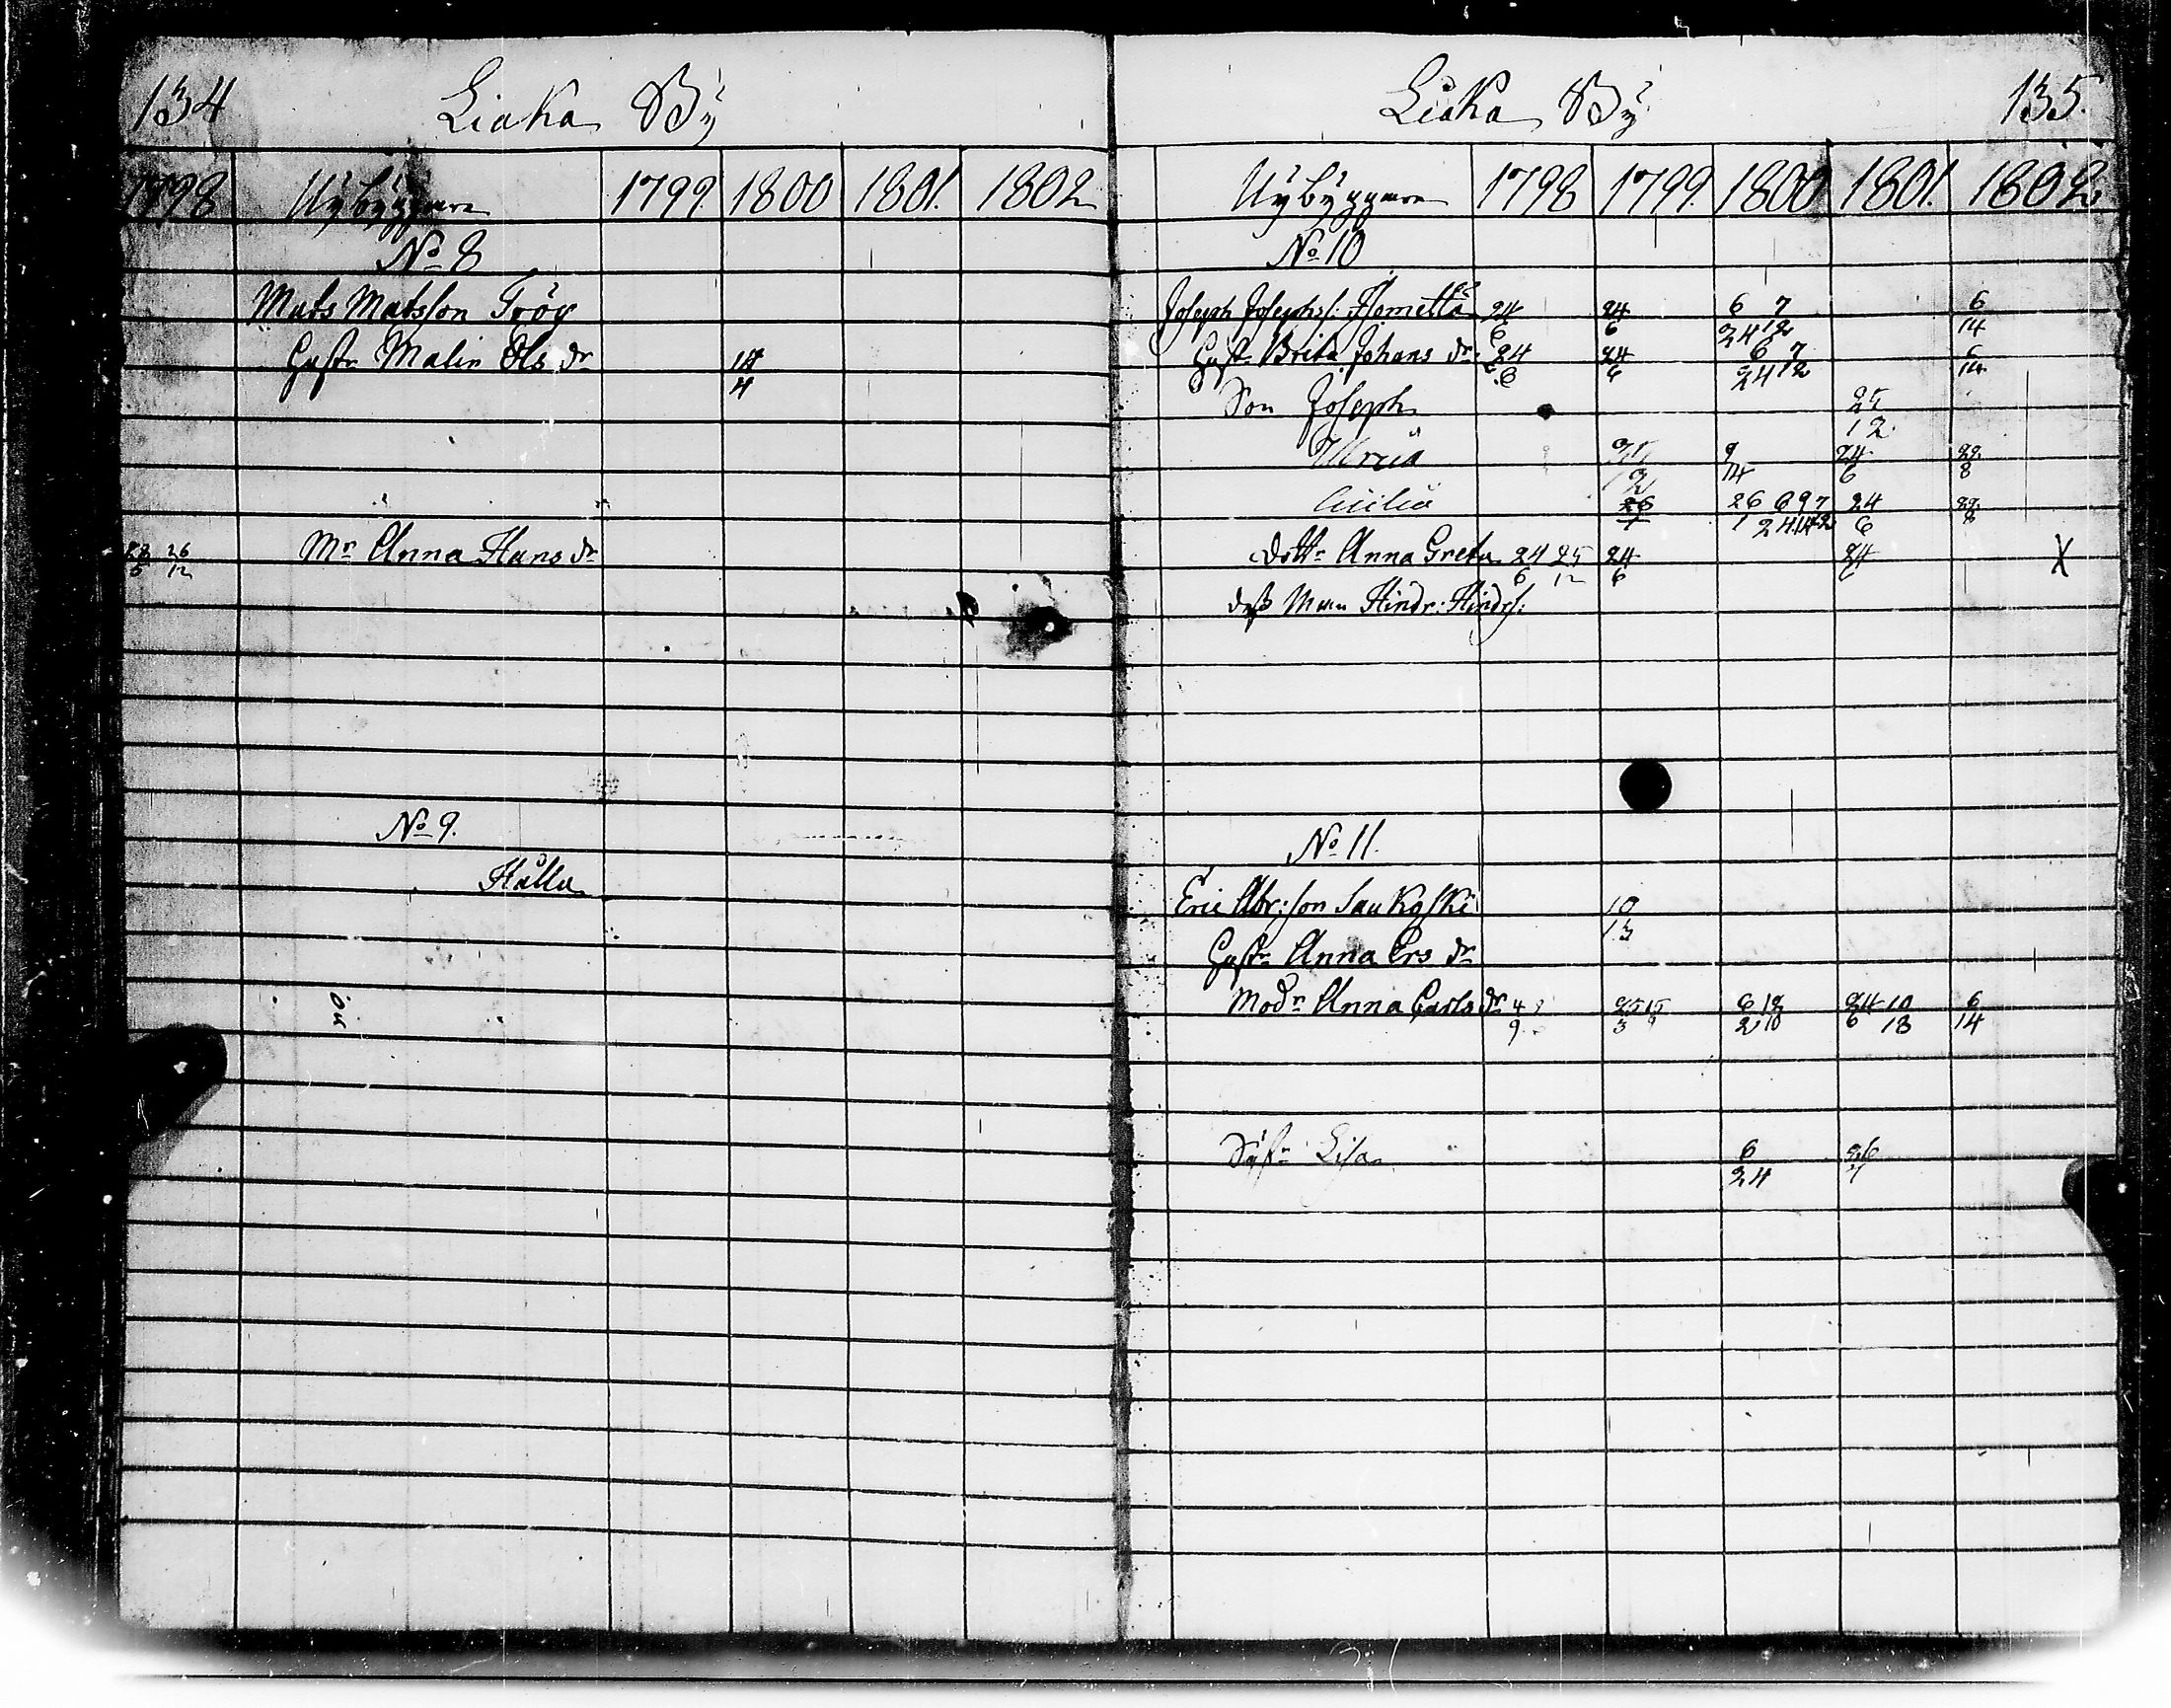 134 Liaka By
1798 Nybyggare 1799 1800 1801. 1802
No 8
Mats Matsson Tröy
Hustr Malin Ols dr 14/4
28/5 26/12 Mr Anna Hans dr
No 9.
Hålla
Liaka By 135.
Nybyggare 1798 1799 1800 1801. 1802
No 10
Joseph Josephss: 24/6 24/6 6/24 7/12 6/14
Hustr Brita Johans dr 24/6 24/6 6/24 7/12 6/14
Son Joseph 25/12
Maria 25/12 9/14 24/6 29/8
Cicilia 26/1 26/1 6/24 9/14 7/12 24/6 29/8
dottr Anna Greta 24/6 25/12 24/6 24/6 X
dess Man Hindr: Hindrs:
No 11.
Eric Abr:son Saukoski 10/13
Hustr Anna Ers dr
Modr Anna Carls dr 25/3 15 6/2 12/10 24/6 10/13 6/14
Systr Lisa 6/24 26/7